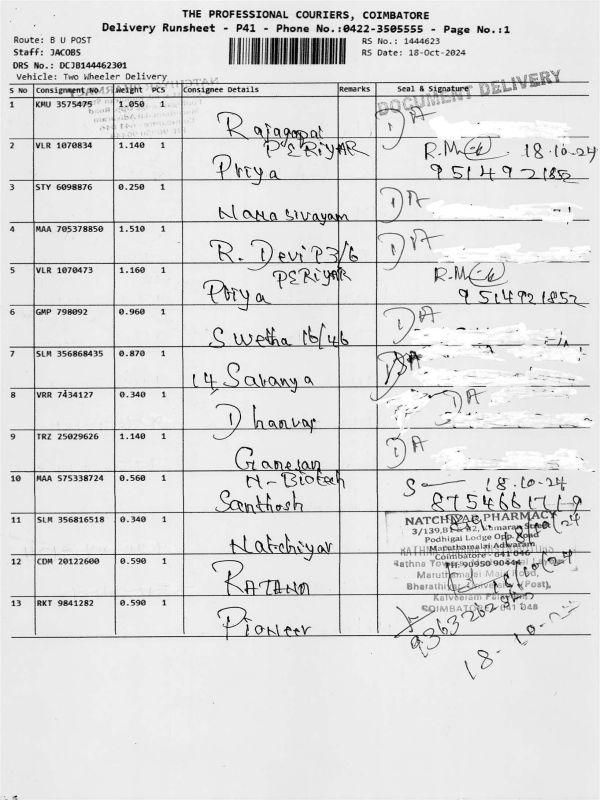 THE PROFESSIONAL COURIERS, COIMBATORE
Delivery Runsheet - P41 - Phone No.:0422-3505555 - Page No.:1
Route: B U POST
RS No.: 1444623
Staff: JACOBS
RS Date: 18-Oct-2024
DRS No.: DCJB144462301
Vehicle: Two Wheeler Delivery
DOCUMENT DELIVERY
S No Consignment No Weight PCS Consignee Details Remarks Seal & Signature
1 KMU 3575475 1.050 1 Rajagopal DA
2 VLR 1070834 1.140 1 PERIYAR Priya R.M 18.10.24
9514921852
3 STY 6098876 0.250 1 Namasivayam DA
4 MAA 705378850 1.510 1 R. Devi P3/6 DA
5 VLR 1070473 1.160 1 PERIYAR Priya R.M
9514921852
6 GMP 798092 0.960 1 Swetha 16/46 DA
7 SLM 356868435 0.870 1 14 Saranya DA
8 VRR 7434127 0.340 1 DA
9 TRZ 25029626 1.140 1 Ganesan DA
10 MAA 575338724 0.560 1 N-Biotech Santhosh S 18.10.24
8754661719
11 SLM 356816518 0.340 1 Natchiyar
NATCHIYAR PHARMACY
3/139,B1 & B2, Kumaran Street
Podhigai Lodge Opp. Road
Maruthamalai Adivaram
Coimbatore - 641 046
PH: 90950 90444
12 CDM 20122600 0.590 1 RATHNA
Rathna
Maruthamalai Main Road,
Bharathiar University (Post),
Kalveeram
COIMBATORE - 641 046
13 RKT 9841282 0.590 1 Pioneer
18-10-24